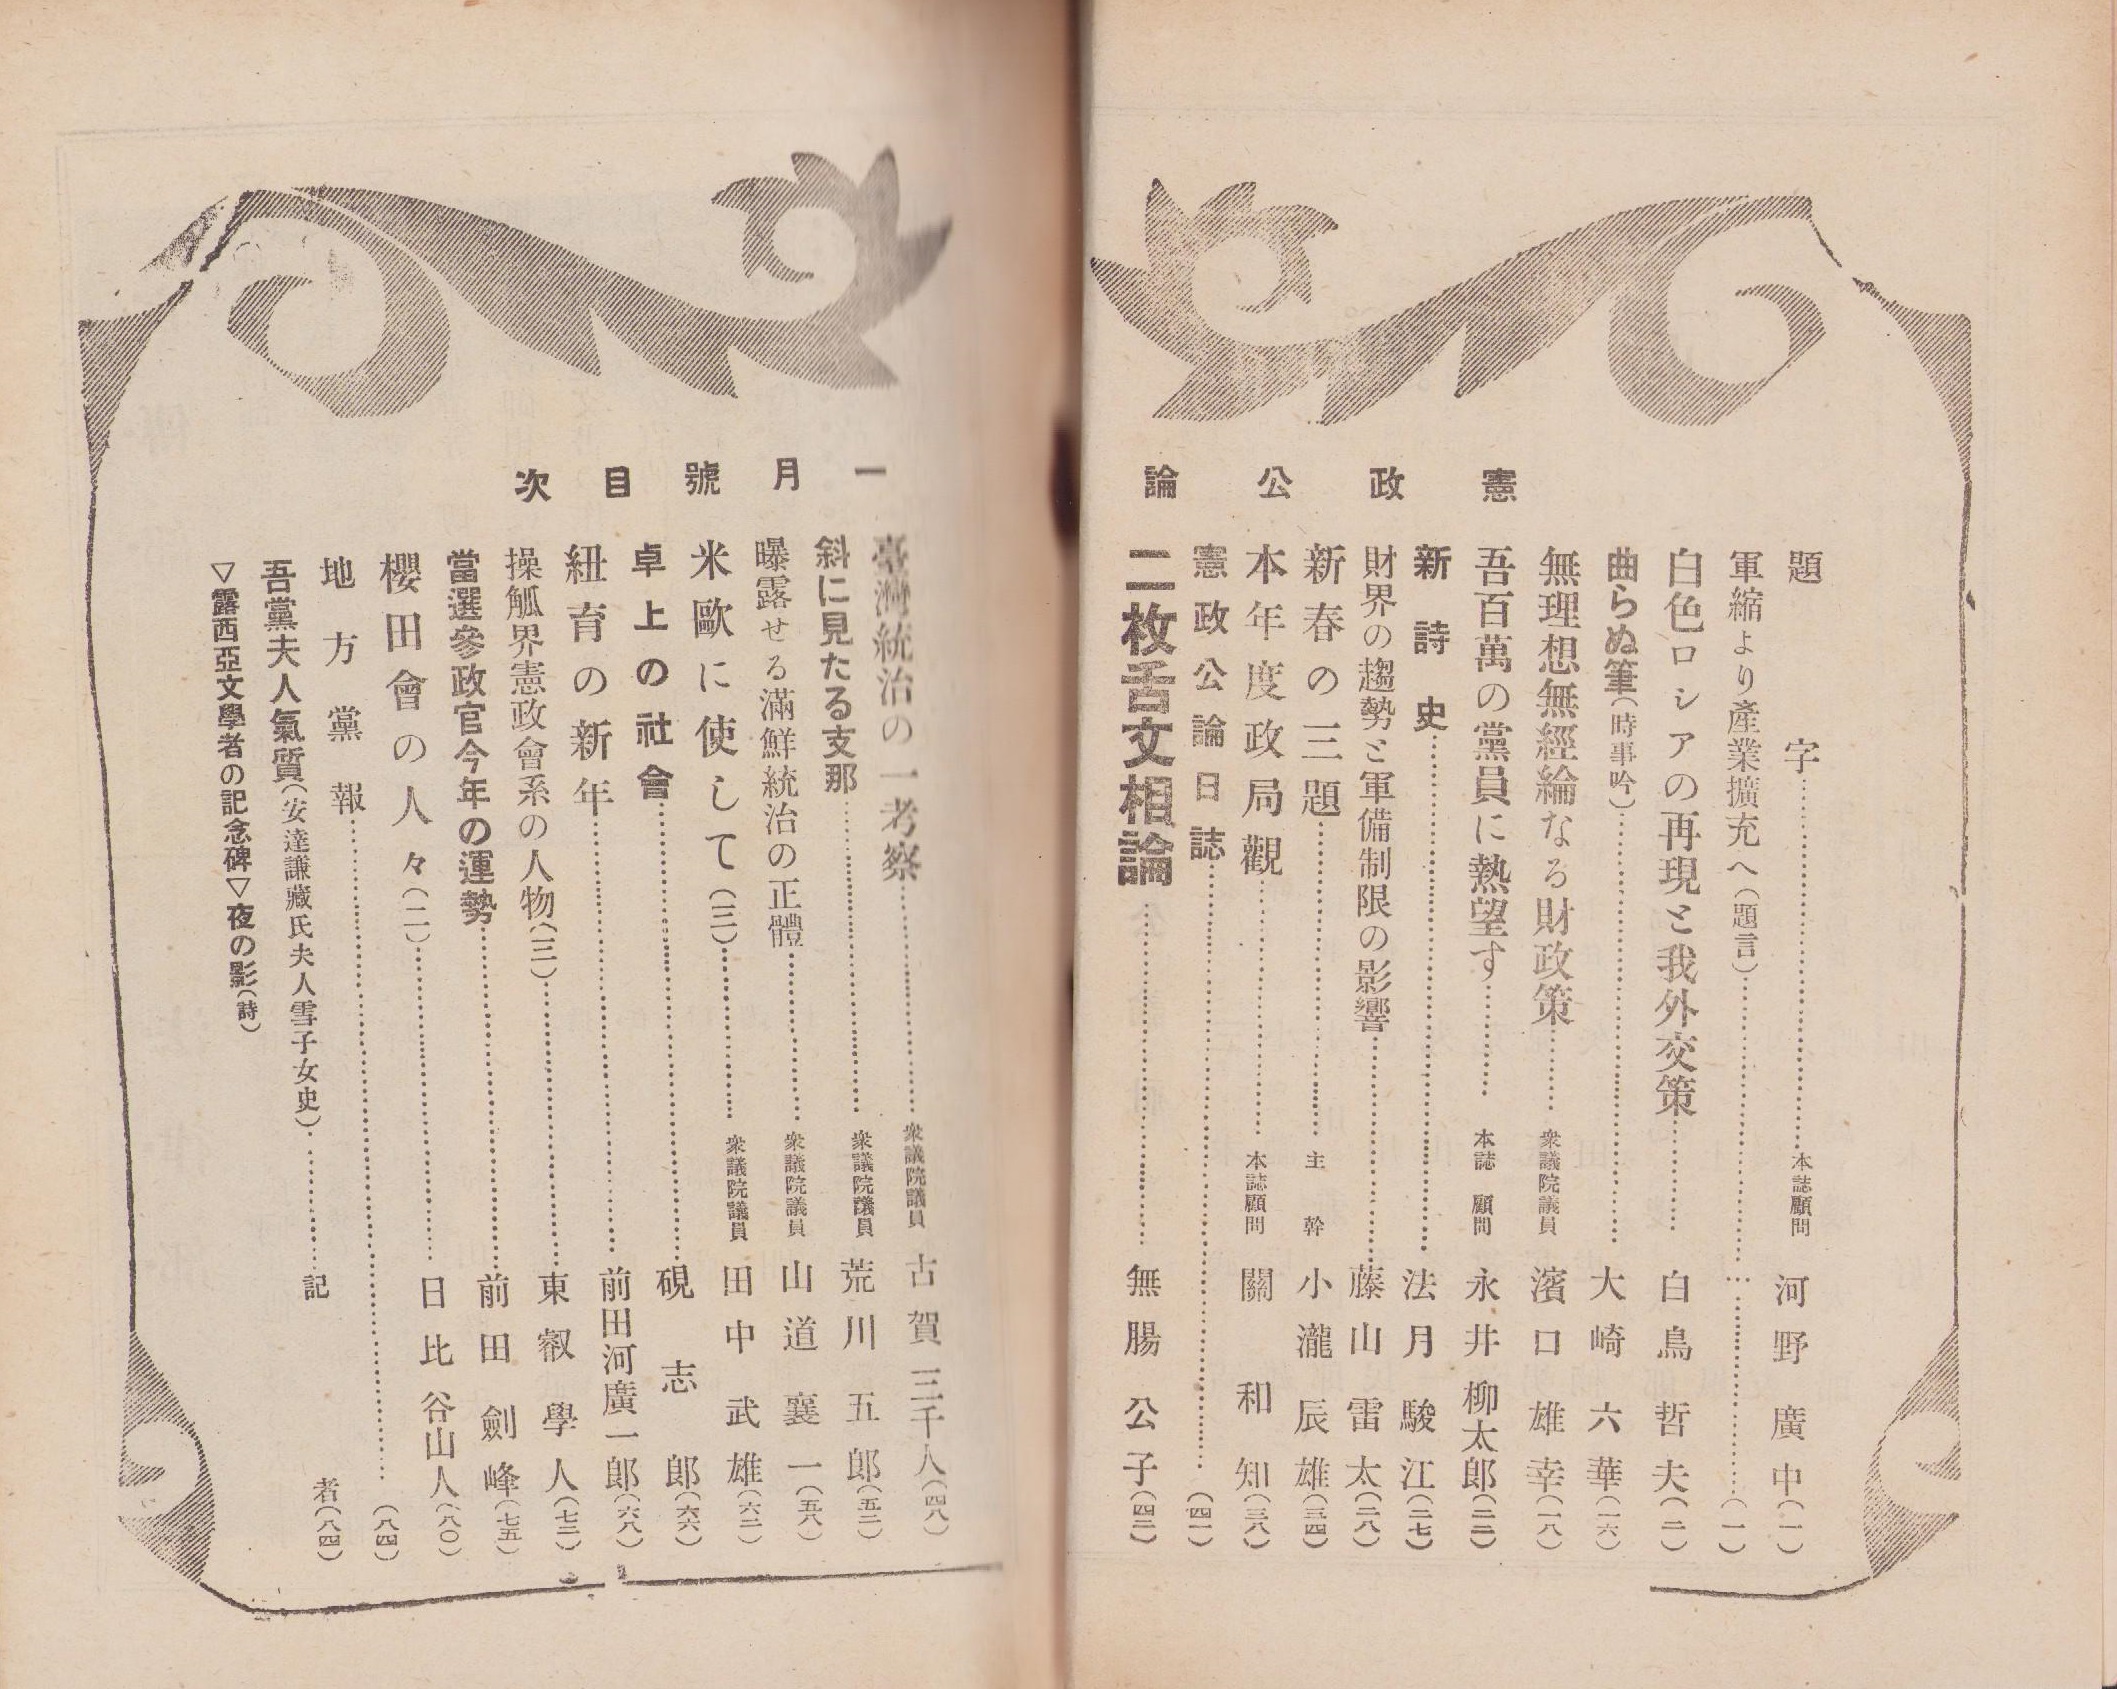 憲政公論
一月號目次
題字……本誌顧問 河野廣中(一)
軍縮より產業擴充へ(題言)……(一)
白色ロシアの再現と我外交策……白鳥哲夫(二)
曲らぬ筆(時事吟)……大崎六華(一六)
無理想無經綸なる財政策……衆議院議員 濱口雄幸(一八)
吾百萬の黨員に熱望す……本誌顧問 永井柳太郎(二二)
新詩史……法月駿江(二七)
財界の趨勢と軍備制限の影響……藤山雷太(二八)
新春の三題……主幹 小瀧辰雄(三四)
本年度政局觀……本誌顧問 關和知(三八)
憲政公論日誌……(四一)
二枚舌文相論……無腸公子(四二)
臺灣統治の一考察……衆議院議員 古賀三千人(四八)
斜に見たる支那……衆議院議員 荒川五郎(五二)
曝露せる滿鮮統治の正體……衆議院議員 山道襄一(五八)
米歐に使して(三)……衆議院議員 田中武雄(六二)
卓上の社會……硯志郎(六六)
紐育の新年……前田河廣一郎(六八)
操觚界憲政會系の人物(三)……東叡學人(七二)
當選參政官今年の運勢……前田劍峰(七五)
櫻田會の人々(二)……日比谷山人(八〇)
地方黨報……(八四)
吾黨夫人氣質(安達謙藏氏夫人雪子女史)……記者(八四)
▽露西亞文學者の記念碑▽夜の影(詩)